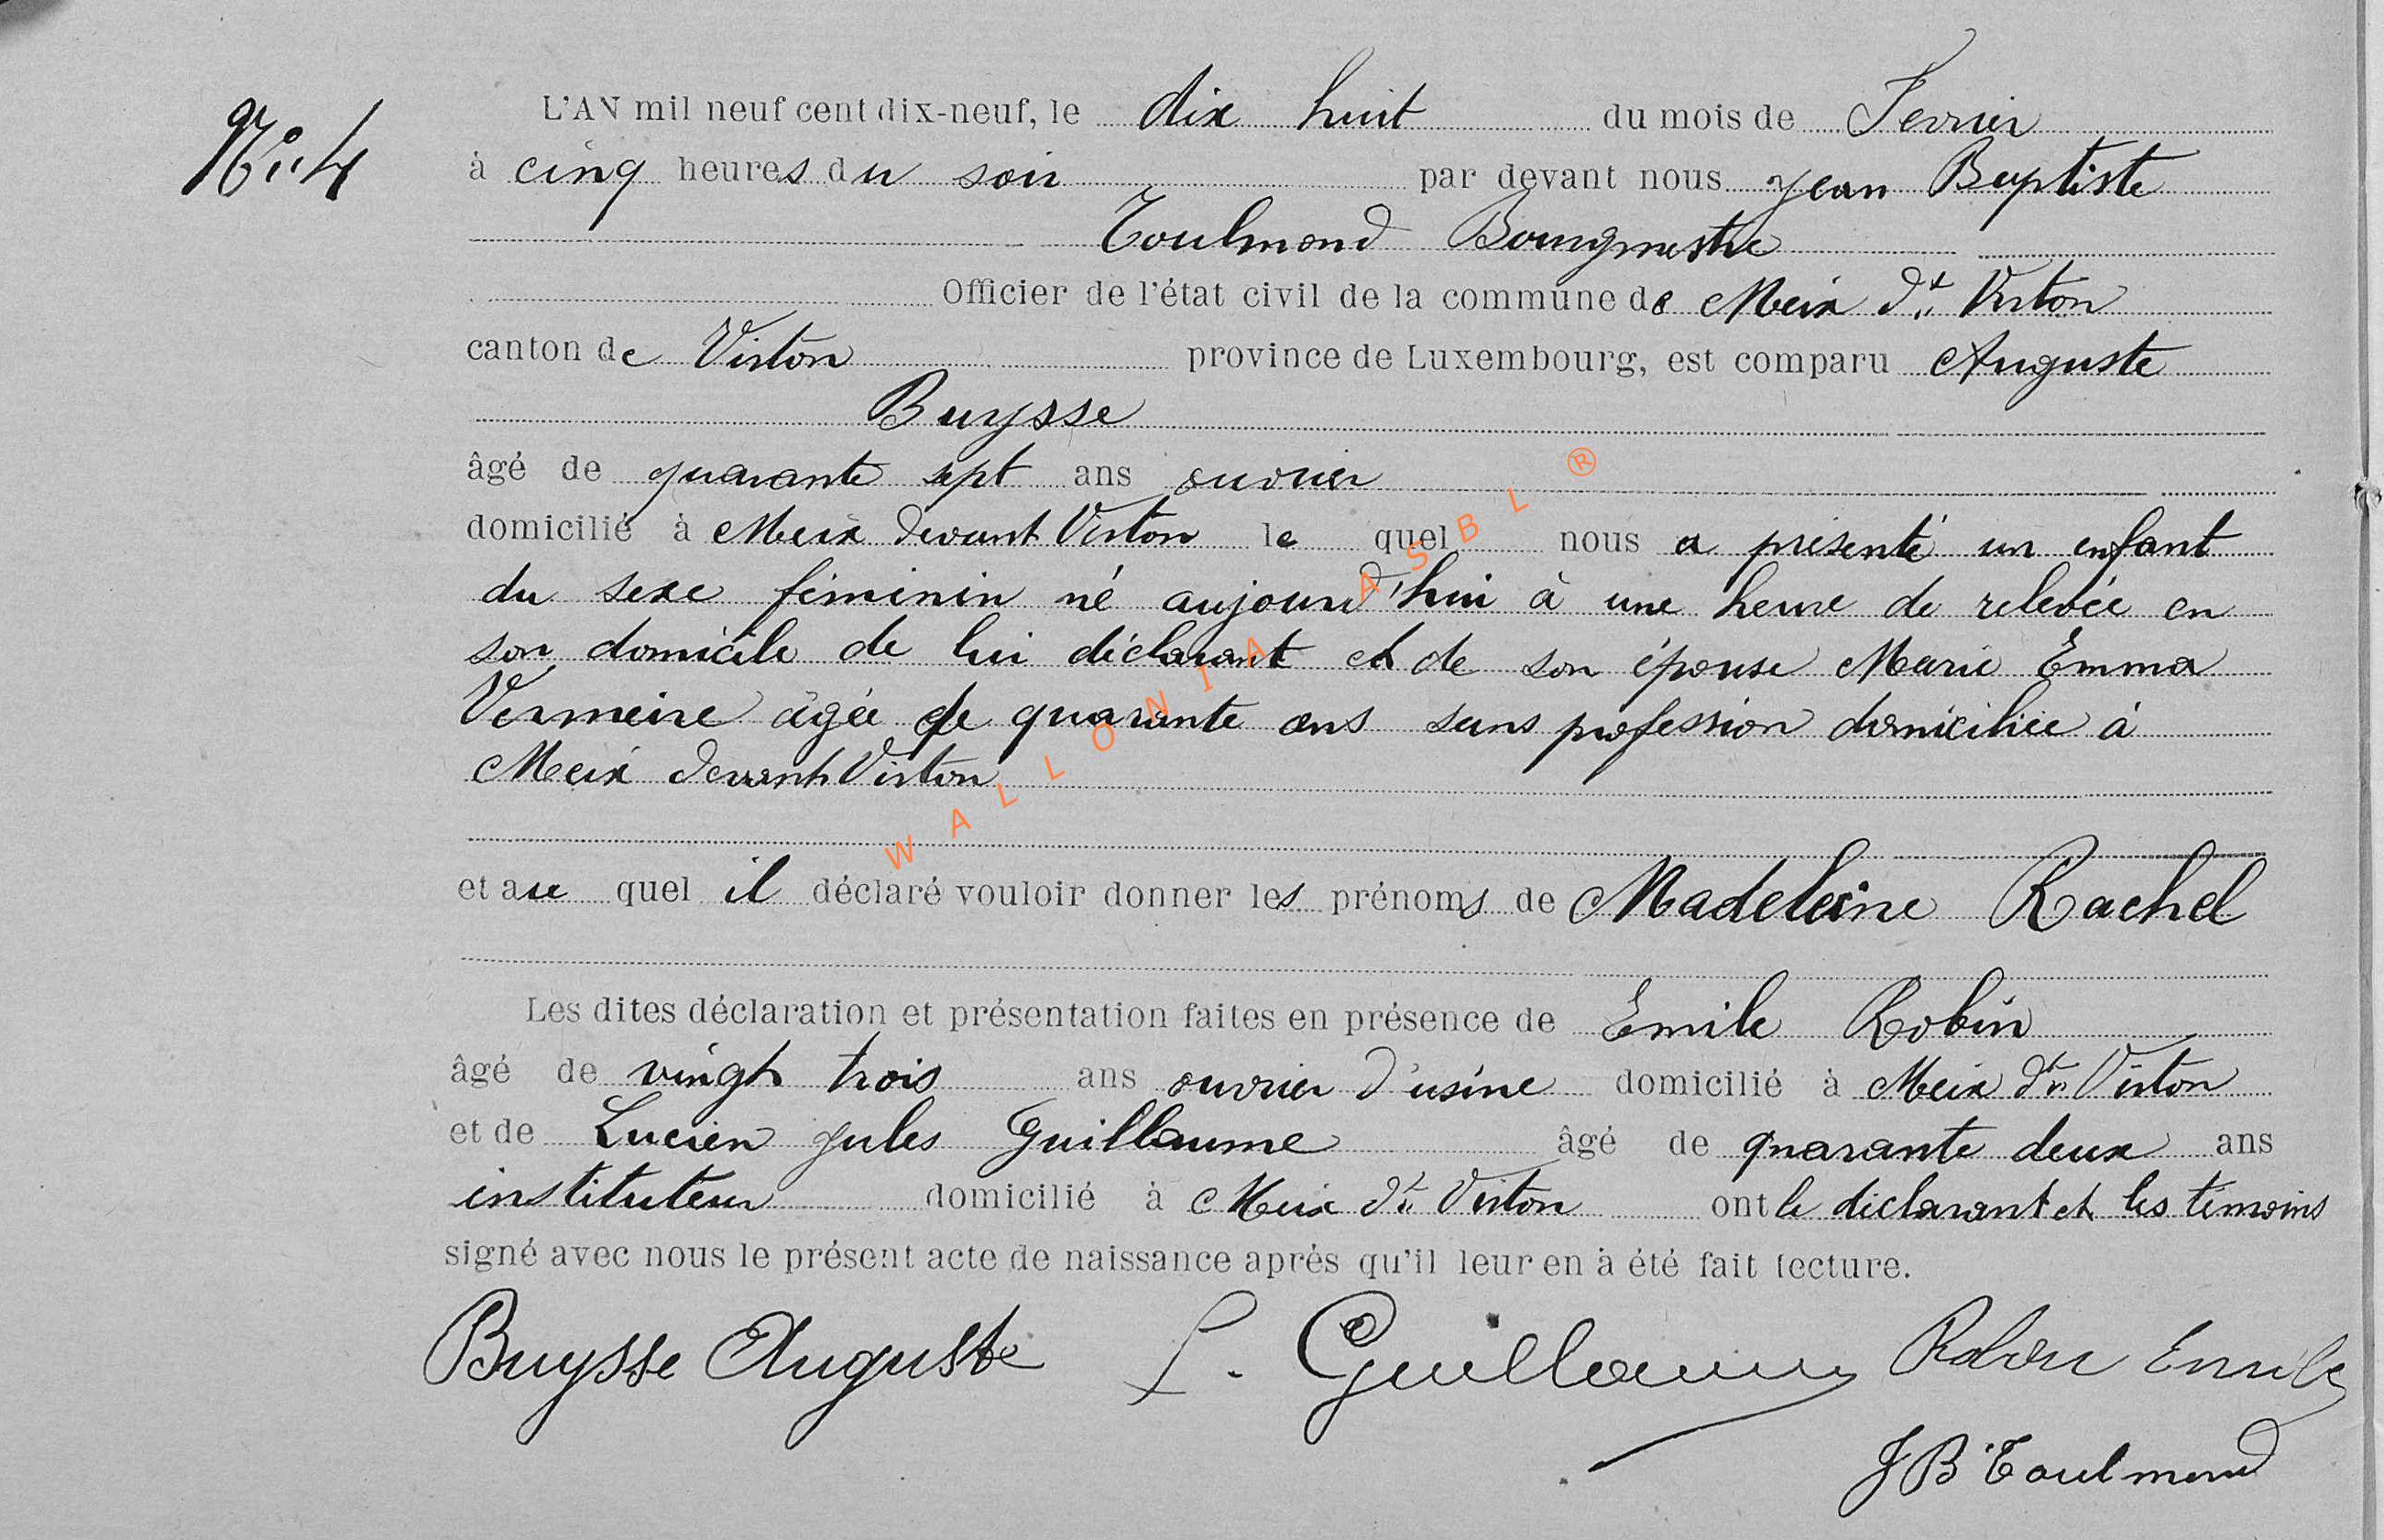 N° 4
L'AN mil neuf cent dix-neuf, le dix huit du mois de Fevrier
à cinq heures du soir par devant nous Jean Baptiste
Toulmond Bourgmestre
Officier de l'état civil de la commune de Meix dt Virton
canton de Virton province de Luxembourg, est comparu Auguste
Buysse
âgé de quarante sept ans ouvrier
domicilié à Meix devant Virton le quel nous a présenté un enfant
du sexe féminin né aujourd'hui à une heure de relevée en
son domicile de lui déclarant et de son épouse Marie Emma
Vermeire âgée de quarante ans sans profession domiciliée à
Meix devant Virton
et au quel il déclaré vouloir donner les prénoms de Madeleine Rachel
Les dites déclaration et présentation faites en présence de Emile Robin
âgé de vingt trois ans ouvrier d'usine domicilié à Meix dt Virton
et de Lucien Jules Guillaume âgé de quarante deux ans
instituteur domicilié à Meix dt Virton ont le déclarant et les témoins
signé avec nous le présent acte de naissance après qu'il leur en à été fait lecture.
Buysse Auguste L. Guillaume Robin Emile
JB Toulmond
WALLONIA ASBL ®